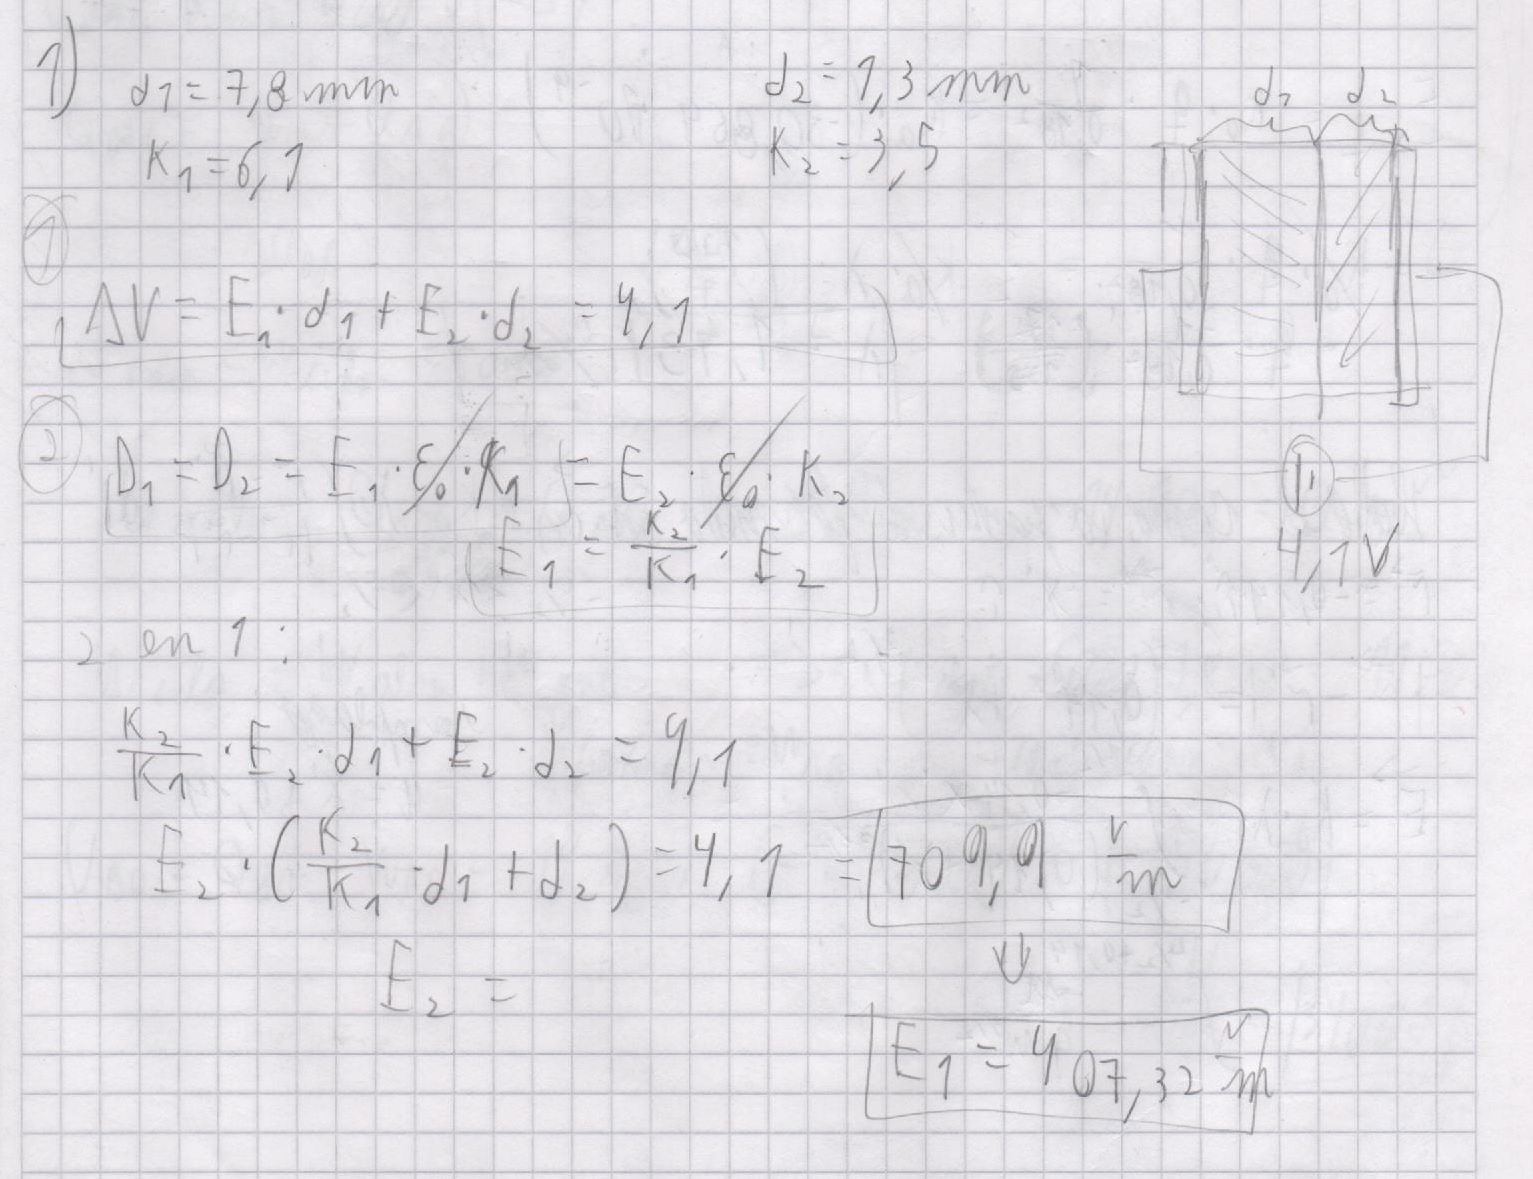 1)
d1 = 7,8 mm
d2 = 1,3 mm
K1 = 6,1
K2 = 3,5
d1 d2
1
ΔV = E1 · d1 + E2 · d2 = 4,1
2
D1 = D2 = E1 · ε0 · K1 = E2 · ε0 · K2
E1 = K2/K1 · E2
4,1 V
2 en 1 :
K2/K1 · E2 · d1 + E2 · d2 = 4,1
E2 · ( K2/K1 · d1 + d2 ) = 4,1 = 709,9 V/m
⇓
E2 =
E1 = 407,32 V/m